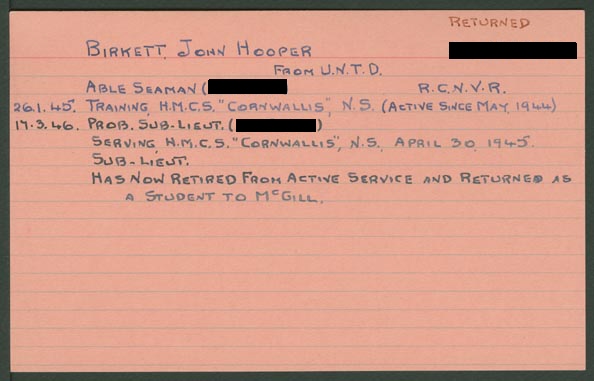 RETURNED
BIRKETT, JOHN HOOPER
FROM U.N.T.D.
ABLE SEAMAN ( R.C.N.V.R.
26.1.45. TRAINING, H.M.C.S. "CORNWALLIS", N.S. (ACTIVE SINCE MAY, 1944)
17.3.46. PROB. SUB-LIEUT. ( )
SERVING, H.M.C.S. "CORNWALLIS", N.S., APRIL 30, 1945.
SUB-LIEUT.
HAS NOW RETIRED FROM ACTIVE SERVICE AND RETURNED AS
A STUDENT TO MCGILL.